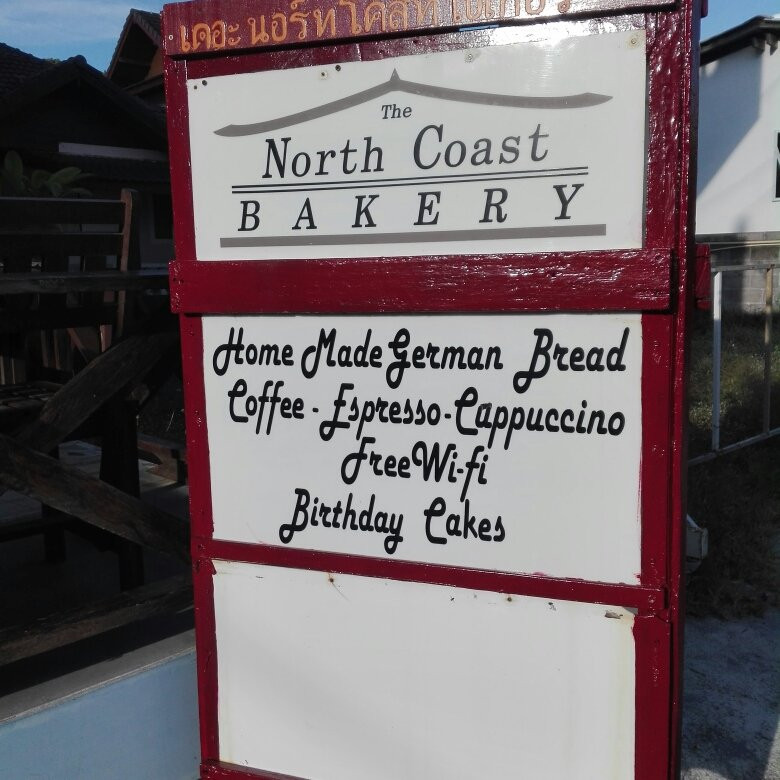 เดอะ นอร์ท โคสท์ เบเกอรี่
The
North Coast
BAKERY
Home Made German Bread
Coffee - Espresso - Cappuccino
Free Wi-fi
Birthday Cakes